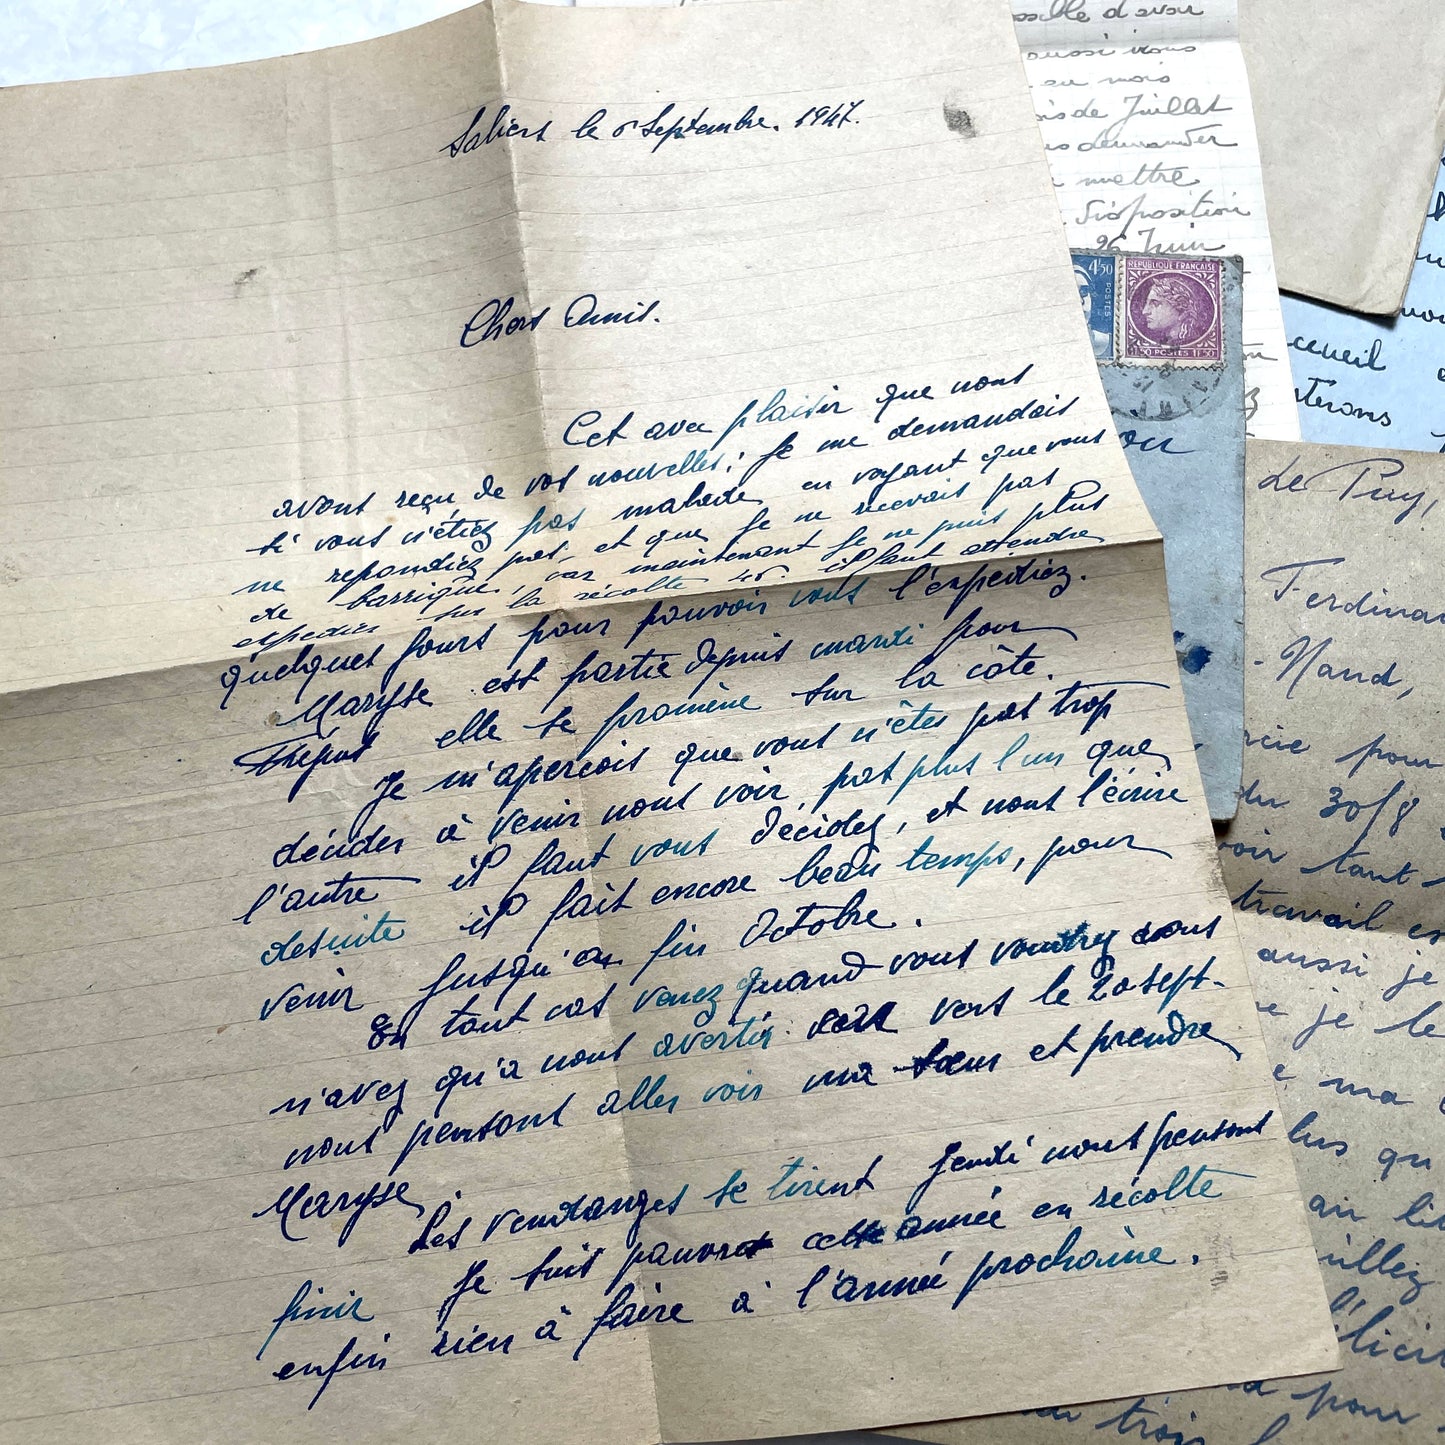 le 6 Septembre. 1947.
Chers Amis.
Cet avec plaisir que nous
avons reçu de vos nouvelles; Je me demandais
si vous n'étiez pas malade en voyant que vous
ne repondiez pas, et que Je ne recevais pas
de barrique, car maintenant Je ne puis plus
expedier sur la récolte 46. il faut attendre
quelques Jours pour pouvoir vous l'expediez.
Maryse est partie depuis mardi pour
elle se promène sur la côte.
Je m'aperçois que vous n'êtes pas trop
décider à venir nous voir pas plus l'un que
l'autre il faut vous décidez, et nous l'écrire
desuite il fait encore beau temps, pour
venir Jusqu'au fin Octobre.
En tout cas venez quand vous voudrez vous
n'avez qu'a nous avertir vers le 20 sept-
nous pensons aller voir ma sœur et prendre
Maryse
Les vendanges se tirent Jeudi nous pensons
finir Je suis pauvre cette année en récolte
enfin rien à faire à l'année prochaine.
d'avoir
aussi vous
au mois
de Juillet
demander
mettre
disposition
26 Juin
4F50
POSTES
REPUBLIQUE FRANÇAISE
1F50 POSTES 1F50
on
Le Puy,
Nand,
pour
du 30/8
tant
travail
aussi je
je le
ma
qu
au
pour
trois